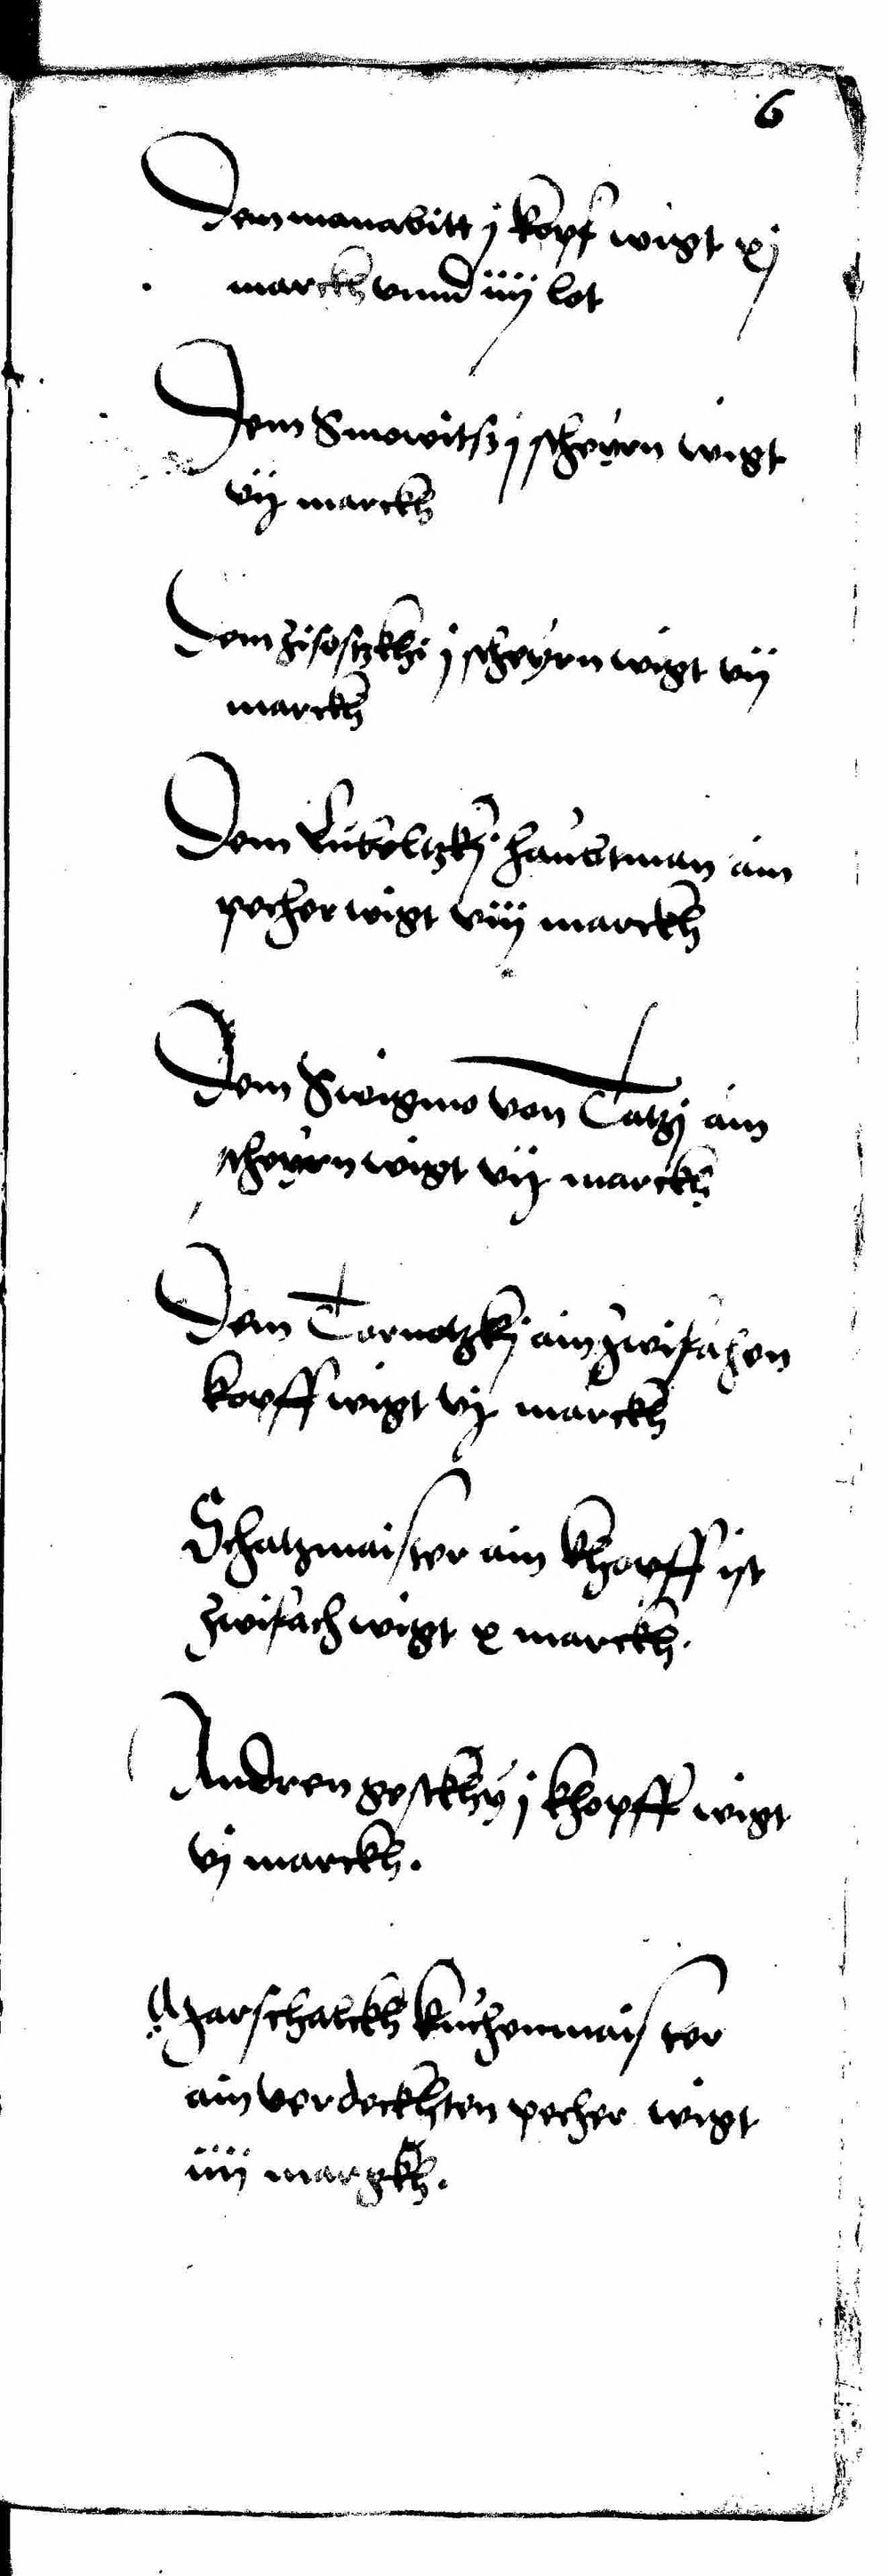 6
Dem manabitt j kopf wigt xj
marckh vnnd iiij lot
Dem Snowitsz j scheyrn wigt
vij marckh
Dem Zisoszkhi j scheyrn wigt vij
marckh
Dem Lubeltzkj haubtman ain
pecher wigt viij marckh
Dem Swigmo von Tatzj ain
scheyrn wigt vij marckh
Dem Tornotzkj ain zwifahen
kopff wigt vj marckh
Schatzmaister ain khopff ist
zwifach wigt x marckh.
Andren gestkhy j khopff wigt
vj marckh.
Marschalckh kuchenmaister
ain verdeckhten pecher wigt
iiij margkh.